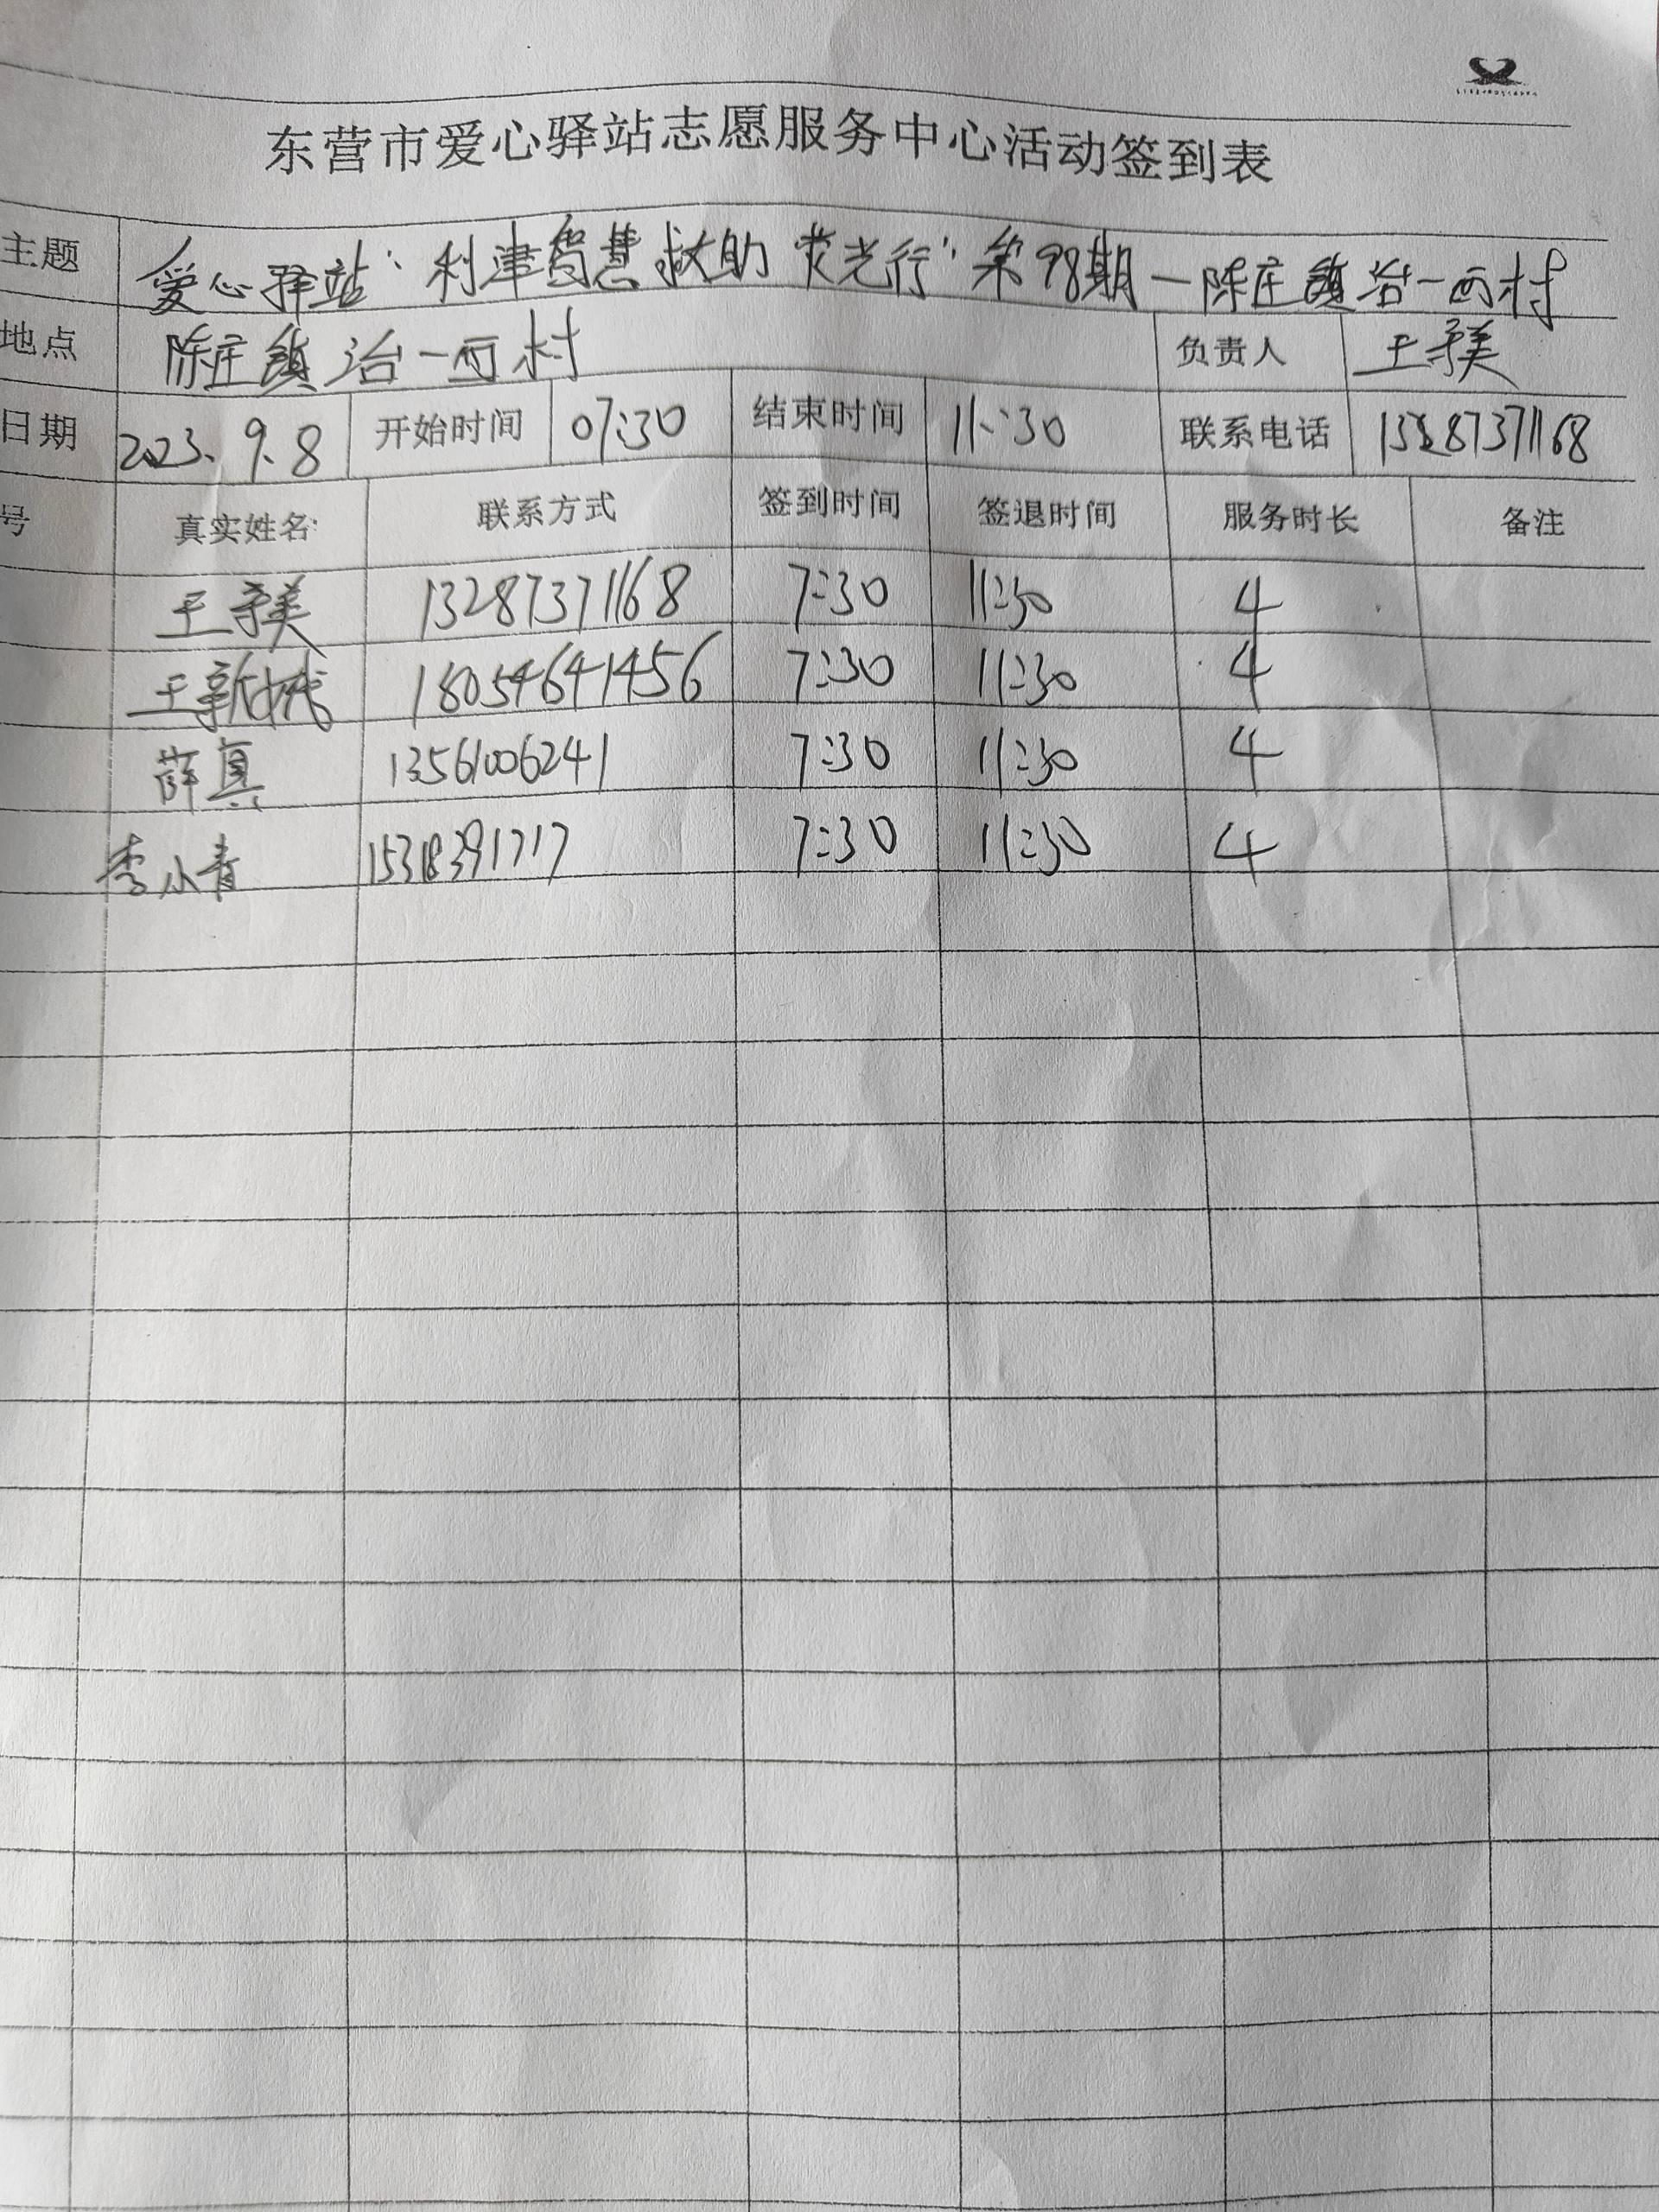 东营市爱心驿站志愿服务中心活动签到表
主题 爱心驿站“利津智慧救助 荧光行”第98期—陈庄镇治一西村
地点 陈庄镇治一西村 负责人 王美
日期 2023.9.8 开始时间 07:30 结束时间 11:30 联系电话 13287371168
号 真实姓名 联系方式 签到时间 签退时间 服务时长 备注
王美 13287371168 7:30 11:30 4
王新城 18054641456 7:30 11:30 4
薛真 13561006241 7:30 11:30 4
李小青 15318391717 7:30 11:30 4